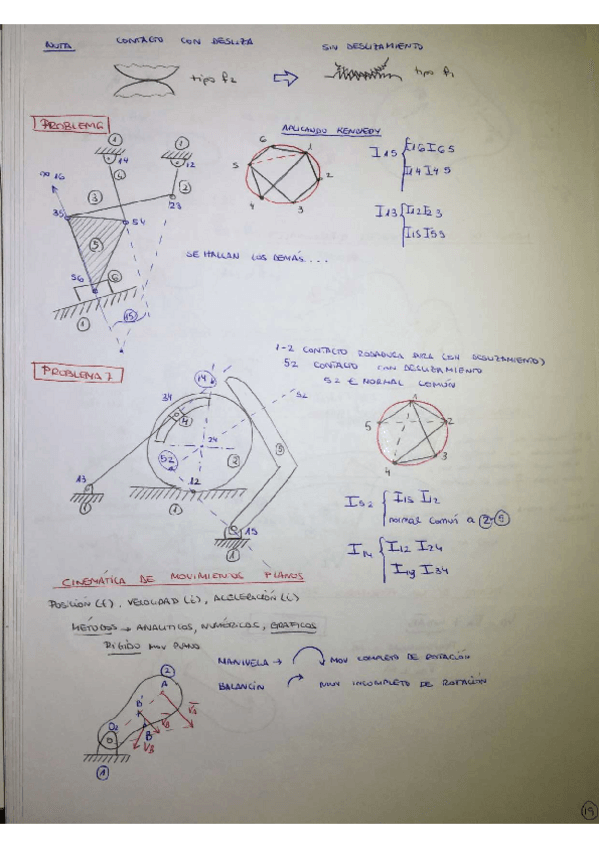 NOTA CONTACTO CON DESLIZA SIN DESLIZAMIENTO
tipo f2 tipo f1
PROBLEMA 6
APLICANDO KENNEDY
1 1
14 12
4 2
∞ 16
3
35 54 23
5
56 6
1 15
6 1
5 2
4 3
I15 { I16 I65
I14 I45
I13 { I12 I23
I15 I53
SE HALLAN LOS DEMÁS....
1-2 CONTACTO RODADURA PURA (SIN DESLIZAMIENTO)
52 CONTACTO CON DESLIZAMIENTO
52 ∈ NORMAL COMÚN
PROBLEMA 7
14
34 52
4
24 3
52 2
13 12
1 1 15
1
1
5 2
4 3
I52 { I15 I12
normal común a 2-5
I14 { I12 I24
I13 I34
CINEMÁTICA DE MOVIMIENTOS PLANOS
POSICIÓN (f), VELOCIDAD (i), ACELERACIÓN (i)
MÉTODOS → ANALITICOS, NUMÉRICOS, GRÁFICOS
RÍGIDO MOV PLANO
MANIVELA → MOV COMPLETO DE ROTACIÓN
BALANCÍN MOV INCOMPLETO DE ROTACIÓN
2
A
B'
O2
B
1
19